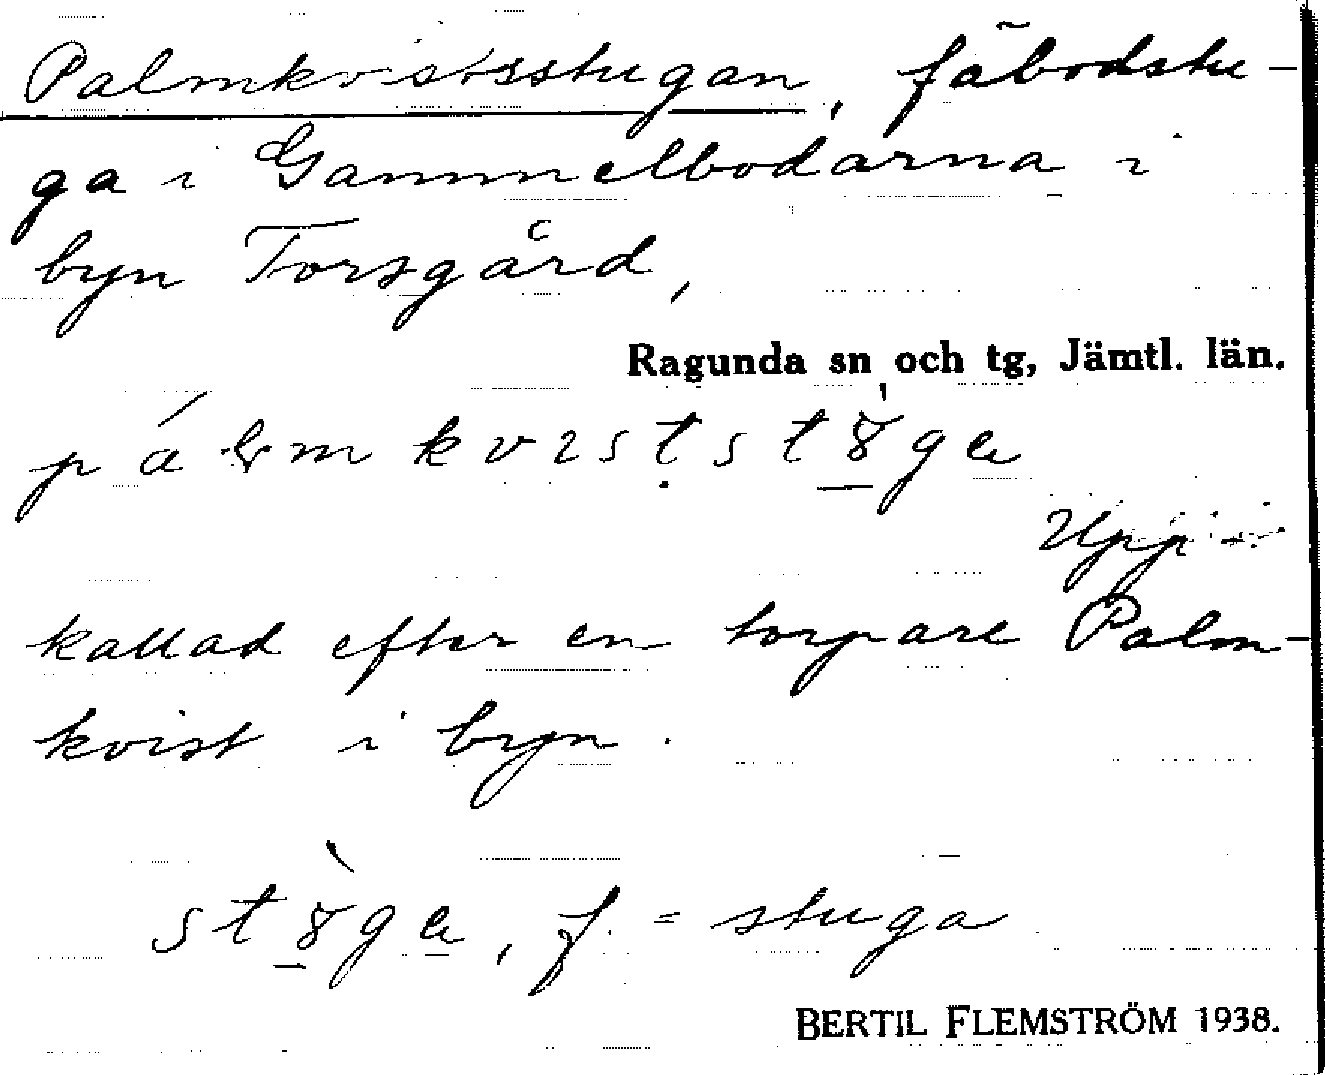 Palmkvistsstugan, fäbodstu-
ga i Gammelbodarna i
byn Torsgård,
Ragunda sn och tg, Jämtl. län.
Upp
kallad efter en torpare Palm-
kvist i byn.
f. = stuga
BERTIL FLEMSTRÖM 1938.